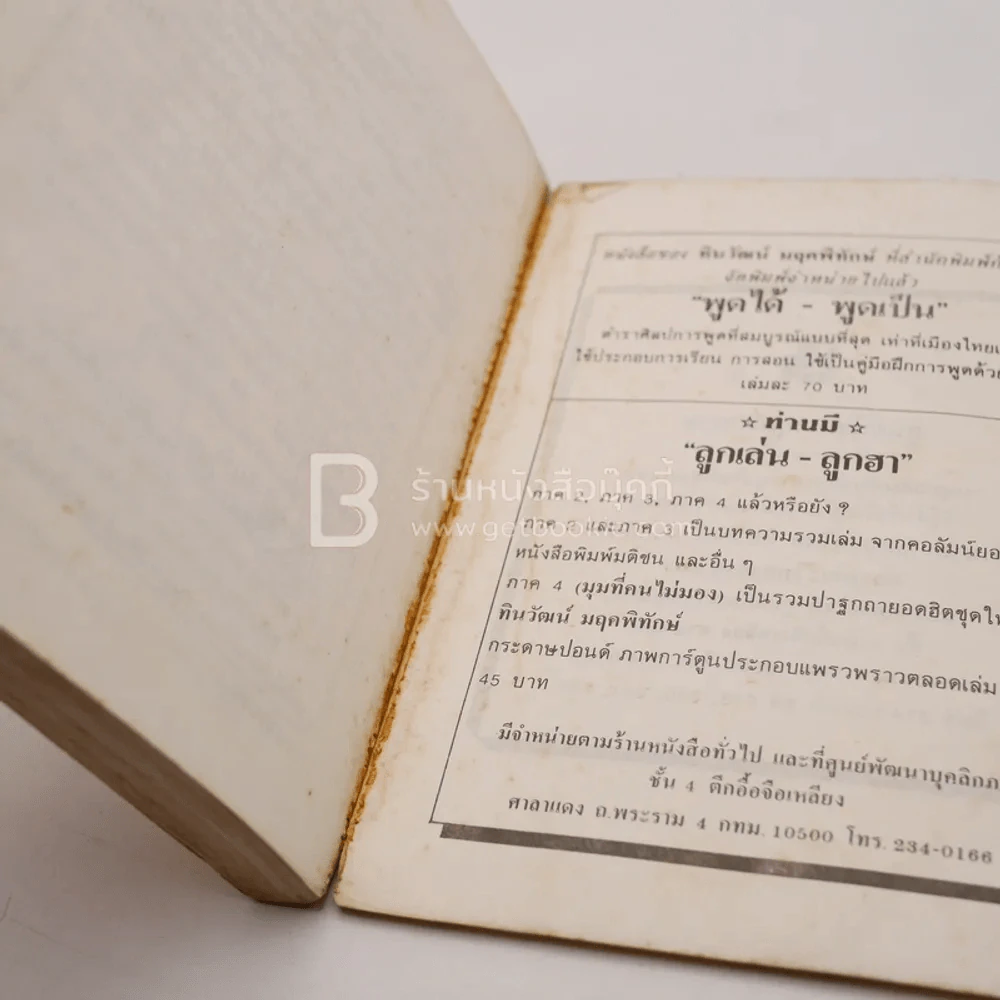 หนังสือของ ทินวัฒน์ มฤคพิทักษ์ ที่สำนักพิมพ์
จัดพิมพ์จำหน่ายไปแล้ว
"พูดได้ - พูดเป็น"
ตำราศิลปการพูดที่สมบูรณ์แบบที่สุด เท่าที่เมืองไทย
ใช้ประกอบการเรียน การสอน ใช้เป็นคู่มือฝึกการพูดด้วย
เล่มละ 70 บาท
☆ ท่านมี ☆
"ลูกเล่น - ลูกฮา"
ภาค 2, ภาค 3, ภาค 4 แล้วหรือยัง ?
ภาค 2 และภาค 3 เป็นบทความรวมเล่ม จากคอลัมน์ยอ
หนังสือพิมพ์มติชน และอื่น ๆ
ภาค 4 (มุมที่คนไม่มอง) เป็นรวมปาฐกถายอดฮิตชุดให
ทินวัฒน์ มฤคพิทักษ์
กระดาษปอนด์ ภาพการ์ตูนประกอบแพรวพราวตลอดเล่ม
45 บาท
มีจำหน่ายตามร้านหนังสือทั่วไป และที่ศูนย์พัฒนาบุคลิกภ
ชั้น 4 ตึกอื้อจือเหลียง
ศาลาแดง ถ.พระราม 4 กทม. 10500 โทร. 234-0166
B ร้านหนังสือบุ๊คกี้